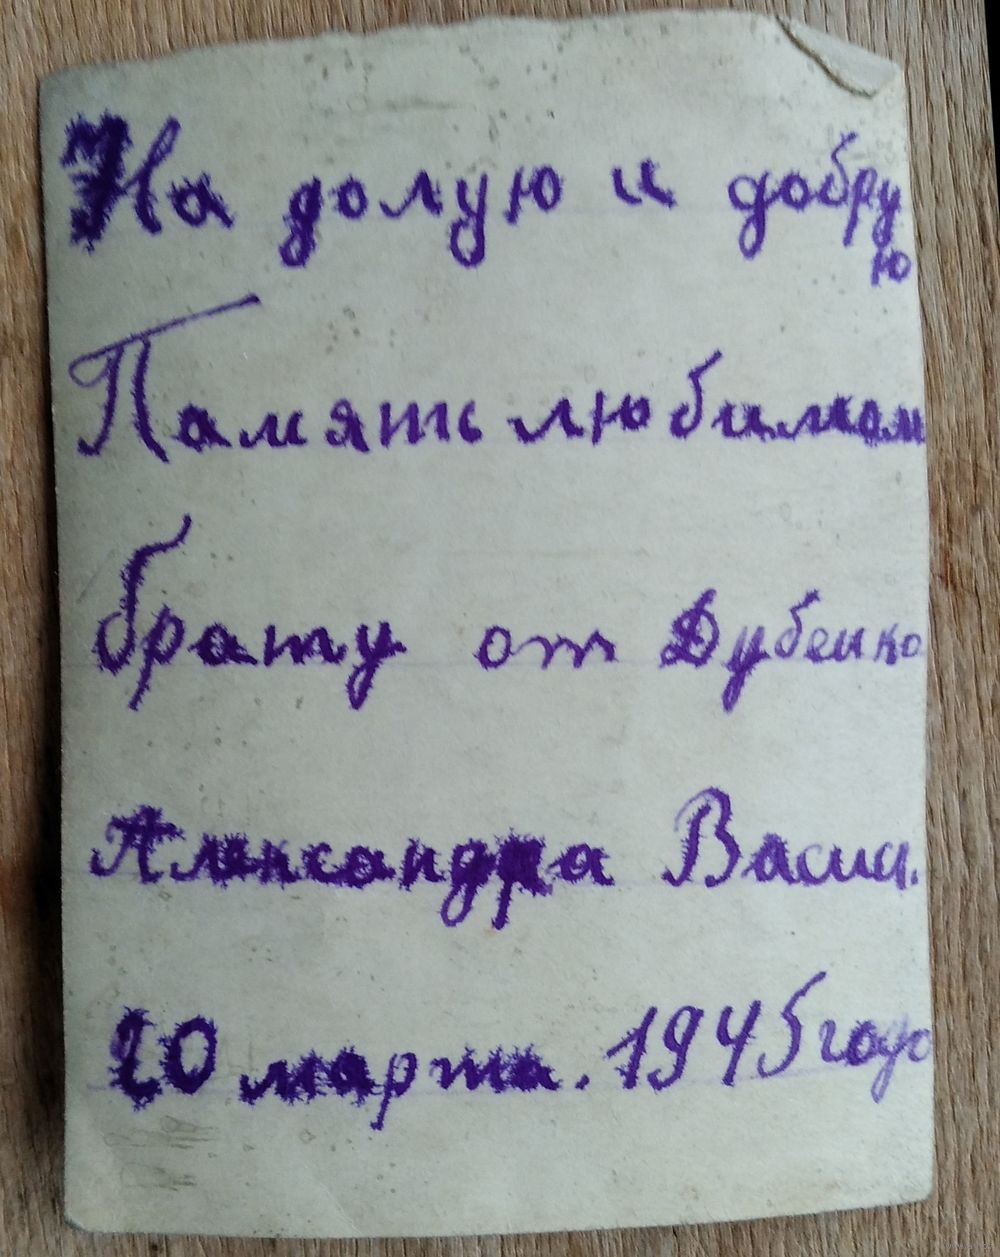 На долую и добрую
Память любимом
брату от Дубенко
Александра Васил.
20 марта. 1945 года